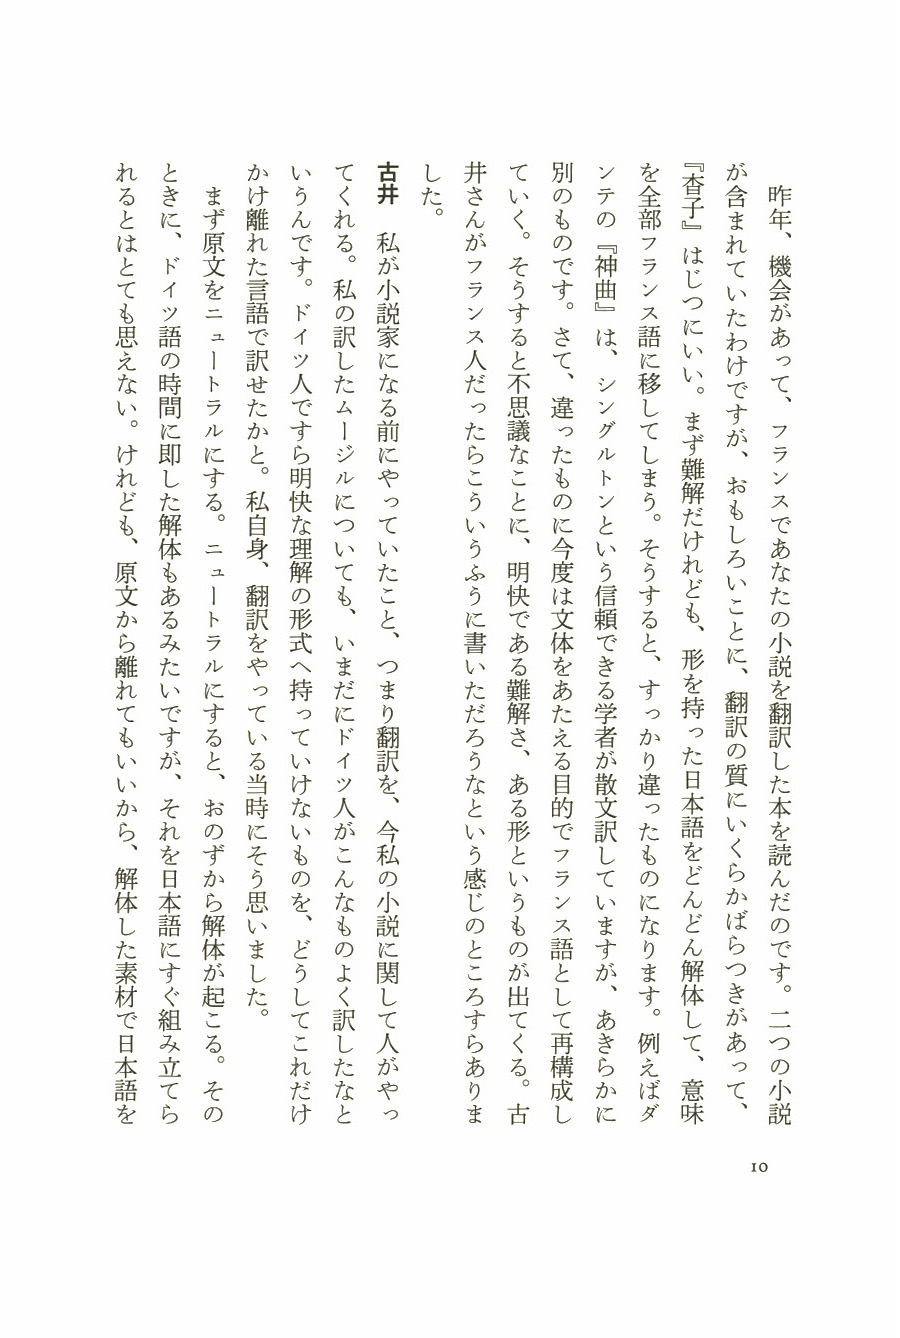 昨年、機会があって、フランスであなたの小説を翻訳した本を読んだのです。二つの小説
が含まれていたわけですが、おもしろいことに、翻訳の質にいくらかばらつきがあって、
『杳子』はじつにいい。まず難解だけれども、形を持った日本語をどんどん解体して、意味
を全部フランス語に移してしまう。そうすると、すっかり違ったものになります。例えばダ
ンテの『神曲』は、シングルトンという信頼できる学者が散文訳していますが、あきらかに
別のものです。さて、違ったものに今度は文体をあたえる目的でフランス語として再構成し
ていく。そうすると不思議なことに、明快である難解さ、ある形というものが出てくる。古
井さんがフランス人だったらこういうふうに書いただろうなという感じのところすらありま
した。
古井　私が小説家になる前にやっていたこと、つまり翻訳を、今私の小説に関して人がやっ
てくれる。私の訳したムージルについても、いまだにドイツ人がこんなものよく訳したなと
いうんです。ドイツ人ですら明快な理解の形式へ持っていけないものを、どうしてこれだけ
かけ離れた言語で訳せたかと。私自身、翻訳をやっている当時にそう思いました。
まず原文をニュートラルにする。ニュートラルにすると、おのずから解体が起こる。その
ときに、ドイツ語の時間に即した解体もあるみたいですが、それを日本語にすぐ組み立てら
れるとはとても思えない。けれども、原文から離れてもいいから、解体した素材で日本語を
10